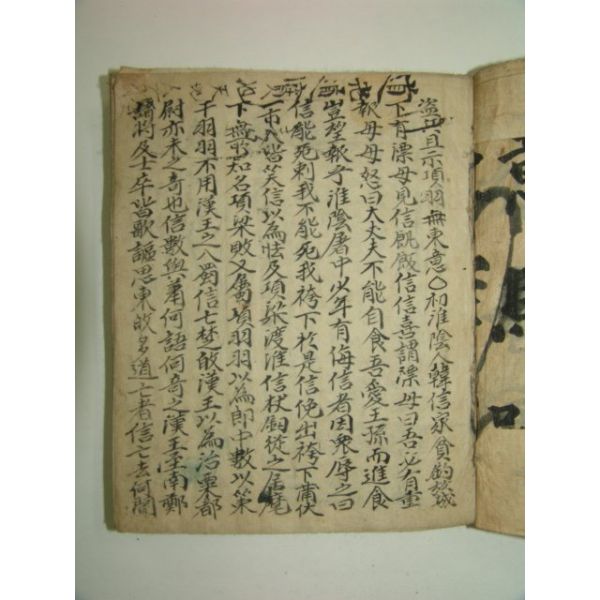 盜且示項羽無東意○初淮陰人韓信家貧釣於城
下有漂母見信飢飯信信喜謂漂母曰吾必有重
報母母怒曰大丈夫不能自食吾愛王孫而進食
豈望報乎淮陰屠中少年有侮信者因衆辱之曰
信能死刺我不能死我袴下於是信俛出袴下蒲伏
一市人皆笑信以為怯及項梁渡淮信杖劍從之居麾
下無所知名項梁敗又屬項羽羽以為郎中數以策
干羽羽不用漢王之入蜀信亡楚歸漢王以為治粟都
尉亦未之奇也信數與蕭何語何奇之漢王至南鄭
諸將及士卒皆歌謳思東歸多道亡者信亡去何聞